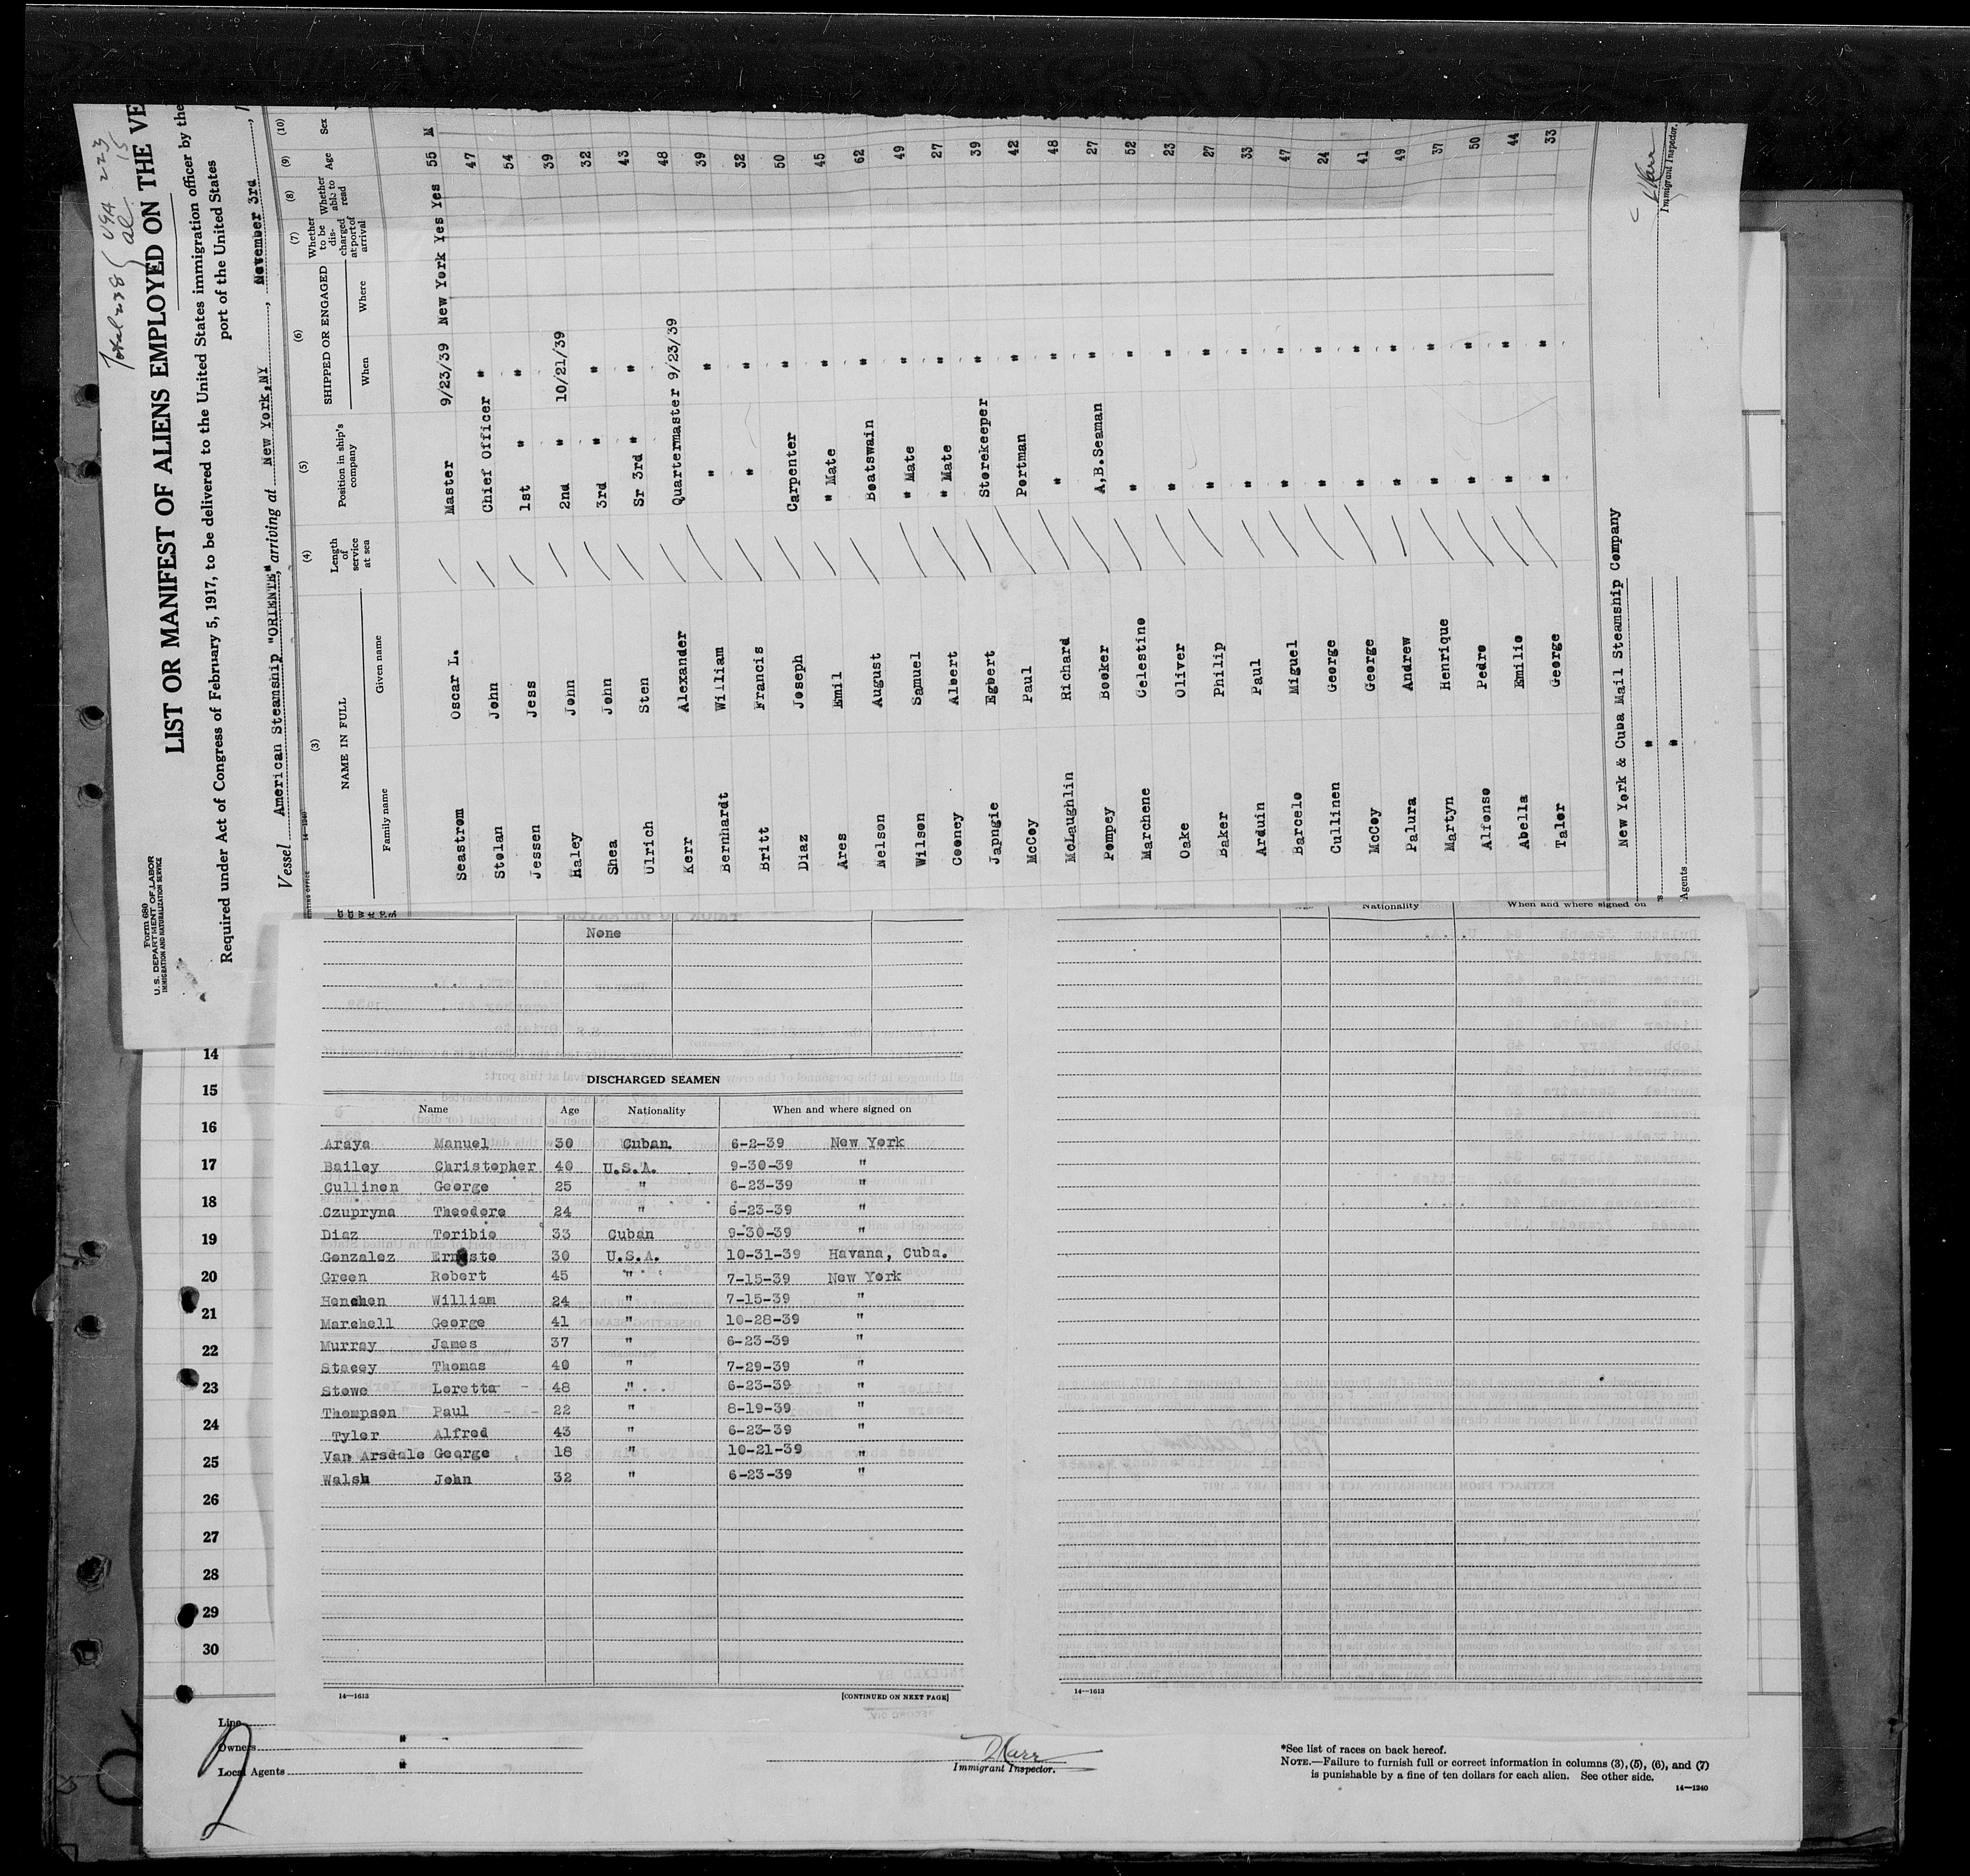 Total 238 { USA 223
al. 15
Form 680
U. S. DEPARTMENT OF LABOR
IMMIGRATION AND NATURALIZATION SERVICE
LIST OR MANIFEST OF ALIENS EMPLOYED ON THE VE
Required under Act of Congress of February 5, 1917, to be delivered to the United States immigration officer by the
port of the United States
Vessel American Steamship "ORIENTE", arriving at New York,NY, November 3rd,
(3) (4) (5) (6) (7) (8) (9) (10)
NAME IN FULL Length of service at sea Position in ship's company SHIPPED OR ENGAGED Whether to be discharged at port of arrival Whether able to read Age Sex
Family name Given name When Where
Seastrom Oscar L. Master 9/23/39 New York Yes Yes 55 M
Stolan John Chief Officer " 47
Jessen Jess 1st " " 54
Haley John 2nd " 10/21/39 39
Shea John 3rd " " 32
Ulrich Sten Sr 3rd " " 43
Kerr Alexander Quartermaster 9/23/39 48
Bernhardt William " " 39
Britt Francis " " 32
Diaz Joseph Carpenter " 50
Ares Emil " Mate " 45
Nelson August Boatswain " 62
Wilson Samuel " Mate " 49
Cooney Albert " Mate " 27
Japngie Egbert Storekeeper " 39
McCoy Paul Portman " 42
McLaughlin Richard " " 48
Pompey Booker A,B.Seaman " 27
Marchene Celestino " " 52
Oake Oliver " " 23
Baker Philip " " 27
Arduin Paul " " 33
Barcelo Miguel " " 47
Cullinen George " " 24
McCoy George " " 41
Palura Andrew " " 49
Martyn Henrique " " 37
Alfonso Pedro " " 50
Abella Emilio " " 44
Taler George " " 33
New York & Cuba Mail Steamship Company
"
Agents "
Immigrant Inspector.
None
DISCHARGED SEAMEN
Name Age Nationality When and where signed on
Araya Manuel 30 Cuban 6-2-39 New York
Bailey Christopher 40 U.S.A. 9-30-39 "
Cullinen George 25 " 6-23-39 "
Czupryna Theodore 24 " 6-23-39 "
Diaz Toribio 33 Cuban 9-30-39 "
Gonzalez Ernesto 30 U.S.A. 10-31-39 Havana, Cuba.
Green Robert 45 " 7-15-39 New York
Henchen William 24 " 7-15-39 "
Marchell George 41 " 10-28-39 "
Murray James 37 " 6-23-39 "
Stacey Thomas 40 " 7-29-39 "
Stowe Loretta 48 " 6-23-39 "
Thompson Paul 22 " 8-19-39 "
Tyler Alfred 43 " 6-23-39 "
Van Arsdale George 18 " 10-21-39 "
Walsh John 32 " 6-23-39 "
14—1613
[CONTINUED ON NEXT PAGE]
Nationality When and where signed on
14—1613
14
15
16
17
18
19
20
21
22
23
24
25
26
27
28
29
30
Line
Owners "
Local Agents "
Immigrant Inspector.
*See list of races on back hereof.
NOTE.—Failure to furnish full or correct information in columns (3), (5), (6), and (7)
is punishable by a fine of ten dollars for each alien. See other side.
14—1240